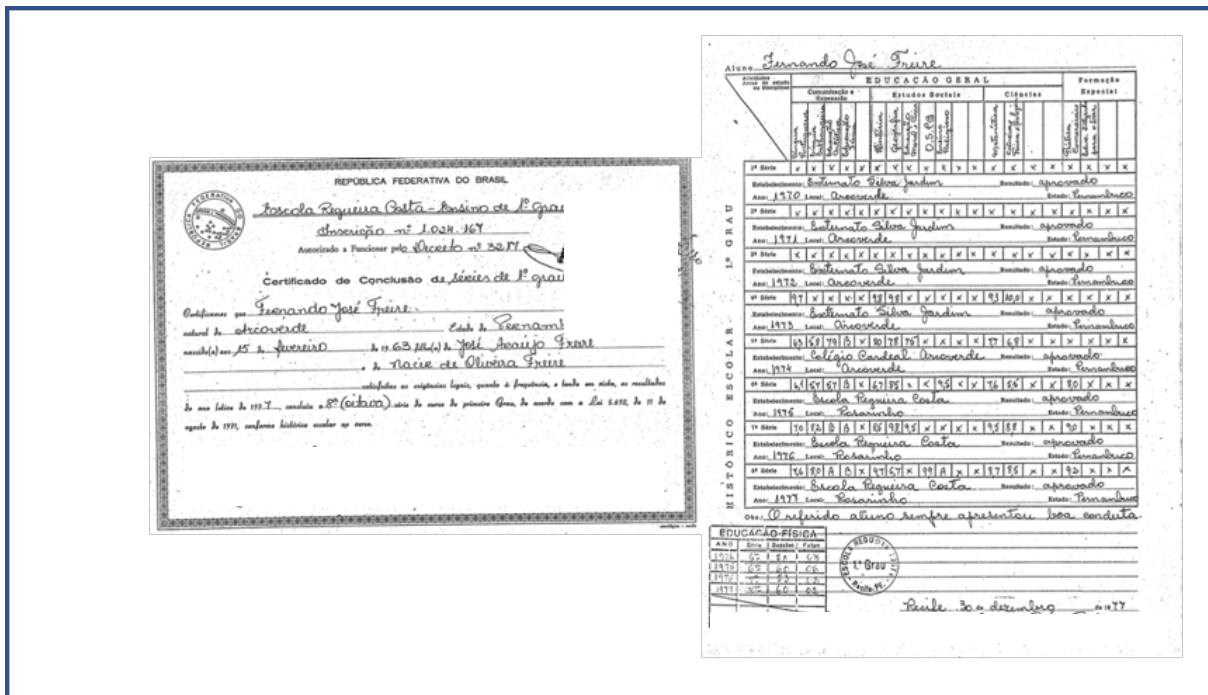 REPÚBLICA FEDERATIVA DO BRASIL
REPÚBLICA FEDERATIVA DO BRASIL
Escola Regueira Costa - Ensino de 1º grau
Inscrição nº 1.024.167
Autorizado a Funcionar pelo Decreto nº 3217
Certificado de Conclusão de séries de 1º grau
Certificamos que Fernando José Freire
natural de Arcoverde Estado de Pernamb
nascido(a) aos 15 de fevereiro de 1963 filho(a) de José Araújo Freire
e de Nacie de Oliveira Freire
satisfeitas as exigências legais, quanto à frequência, e tendo em vista, os resultados
do ano letivo de 1977, concluiu a 8ª (oitava) série do curso de primeiro Grau, de acordo com a Lei 5.692, de 11 de
agosto de 1971, conforme histórico escolar no verso.
Aluno Fernando José Freire
EDUCAÇÃO GERAL Formação Especial
Comunicação e Expressão Estudos Sociais Ciências
História Geografia O.S.P.B Ensino Religioso Matemática
HISTÓRICO ESCOLAR - 1.º GRAU
1ª Série x x x x x x x x x x x x x x x x x
Estabelecimento: Externato Silva Jardim Resultado: aprovado
Ano: 1970 Local: Arcoverde Estado: Pernambuco
2ª Série x x x x x x x x x x x x x x x x x
Estabelecimento: Externato Silva Jardim Resultado: aprovado
Ano: 1971 Local: Arcoverde Estado: Pernambuco
3ª Série x x x x x x x x x x x x x x x x x
Estabelecimento: Externato Silva Jardim Resultado: aprovado
Ano: 1972 Local: Arcoverde Estado: Pernambuco
4ª Série 97 x x x x 98 98 x x x x x 93 10,0 x x x x x x
Estabelecimento: Externato Silva Jardim Resultado: aprovado
Ano: 1973 Local: Arcoverde Estado: Pernambuco
5ª Série 63 58 79 B x 80 78 75 x x x x 77 68 x x x x x x
Estabelecimento: Colégio Cardeal Arcoverde Resultado: aprovado
Ano: 1974 Local: Arcoverde Estado: Pernambuco
6ª Série 67 B x 67 85 x x 9,5 x x 76 8,6 x x 8,0 x x x
Estabelecimento: Escola Regueira Costa Resultado: aprovado
Ano: 1975 Local: Rosarinho Estado: Pernambuco
7ª Série 70 82 B B x 85 98 9,5 x x x x 9,5 88 x x 90 x x x
Estabelecimento: Escola Regueira Costa Resultado: aprovado
Ano: 1976 Local: Rosarinho Estado: Pernambuco
8ª Série 76 80 A B x 97 67 x 99 A x x 87 85 x x 92 x x x
Estabelecimento: Escola Regueira Costa Resultado: aprovado
Ano: 1977 Local: Rosarinho Estado: Pernambuco
Obs: O referido aluno sempre apresentou boa conduta.
EDUCAÇÃO FÍSICA
ANO Série Sessões Faltas
1975 6ª 60 06
1977 60 02
ESCOLA REGUEIRA COSTA
1.º Grau
Recife-PE.
Recife 30 de dezembro de 1977